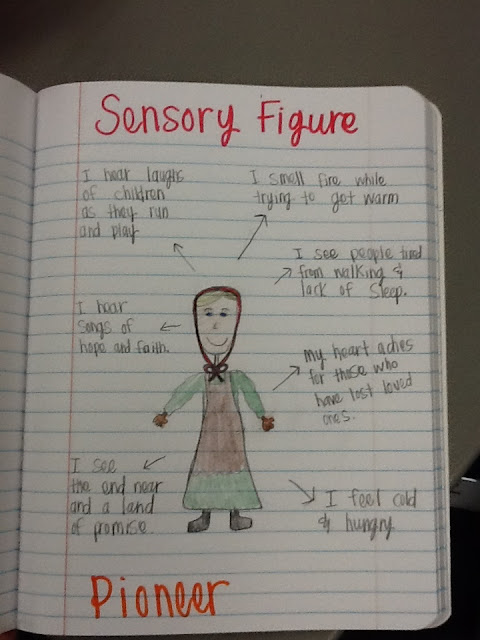 Sensory Figure
I hear laughs
of children
as they run
and play
I smell fire while
trying to get warm
I see people tired
from walking &
lack of sleep.
I hear
songs of
hope and faith.
my heart aches
for those who
have lost loved
ones.
I see
the end near
and a land
of promise
I feel cold
& hungry
Pioneer